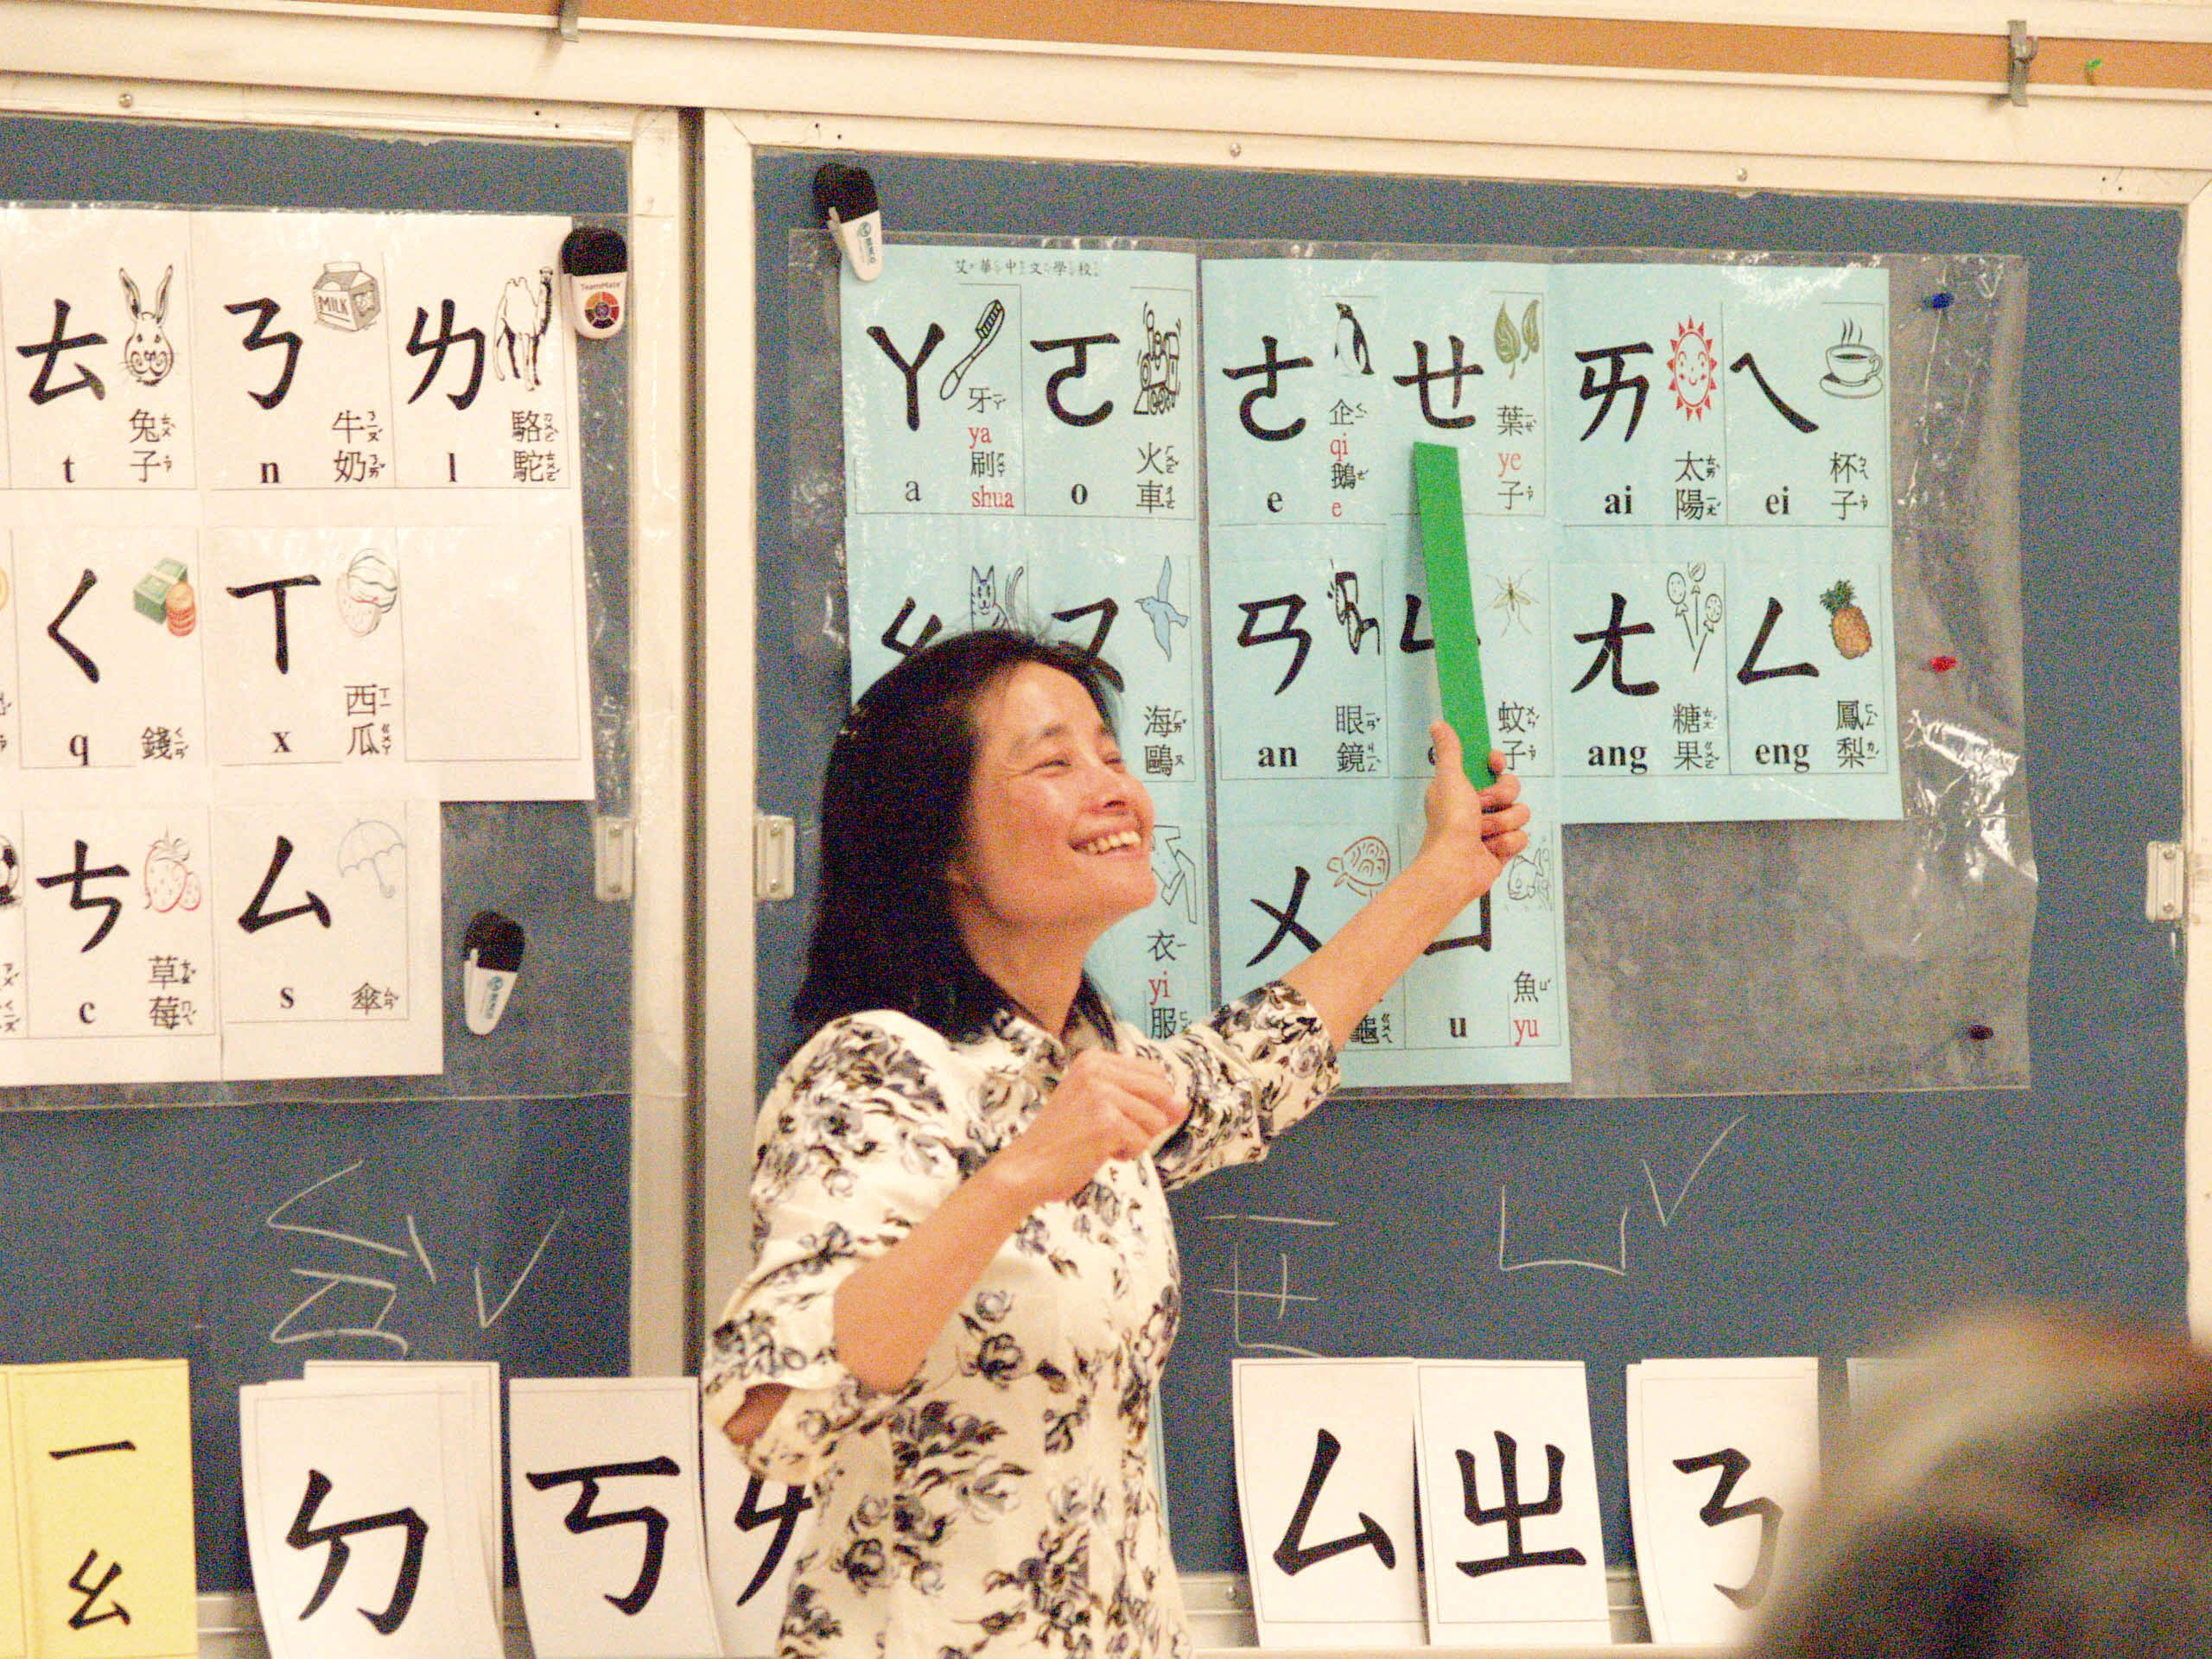 艾華中文學校
ㄊ 兔子 t
ㄋ MILK 牛奶 n
ㄌ 駱駝 l
ㄑ 錢 q
ㄒ 西瓜 x
ㄘ 草莓 c
ㄙ 傘 s
ㄚ 牙 ya 刷 shua a
ㄛ 火車 o
ㄜ 企 qi 鵝 e e
ㄝ 葉 ye 子
ㄞ 太陽 ai
ㄟ 杯子 ei
ㄠ
ㄡ 海鷗
ㄢ 眼鏡 an
ㄣ 蚊子
ㄤ 糖果 ang
ㄥ 鳳梨 eng
衣 yi 服
ㄨ 龜
ㄩ 魚 yu u
TeamMate
ㄩˇ
ㄧ
ㄠ
ㄉ
ㄎ
ㄙ
ㄓ
ㄋ